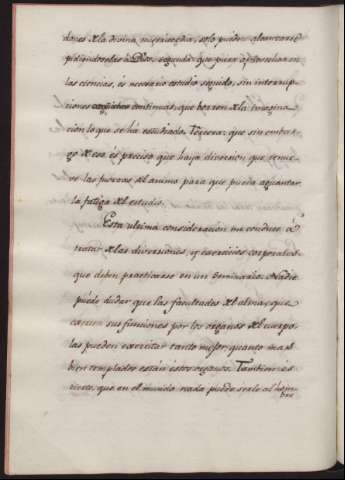 dones de la divina misericordia, solo puden alcanzarse
pidiendoselos à Dios. segunda: que para aprovechar en
las ciencias, és necesario estudio seguido, sin interrupc
ciones continuas, que borren de la imagina
cion lo que se ha estudiado. Tercera: que sin embar
go de eso és preciso que haya diversion, que renue
ve las fuerzas del animo para que pueda aguantar
la fatiga del estudio.
Esta ultima consideracion me conduce à
tratar de las diversiones, y exercicios corporales
que deben practicarse en un Seminario. Nadie
puede dudar que las facultades del alma, que
exercen sus funciones por los organos del cuerpo,
las pueden exercitar tanto mejor, quanto mas
bien templados estàn estos organos. Tambien és
cierto, que en el mundo nada puede serle al hom
bre